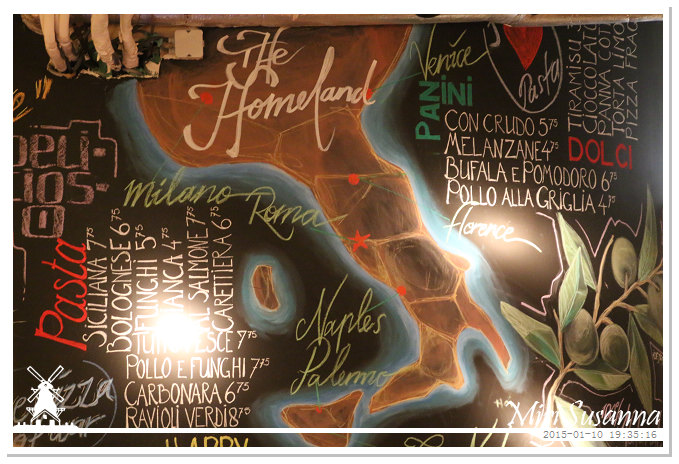 The
Homeland
Venice
Pasta
PANINI
CON CRUDO 5 75
MELANZANE 4 75
BUFALA E POMODORO 6 75
POLLO ALLA GRIGLIA 4 75
DOLCI
TIRAMISU
PANNA COT
PIZZA
Milano
Roma
Florence
Naples
Palermo
DELI
Pasta
SICILIANA 7 75
BOLOGNESE 6 75
FUNGHI 5 75
IANCA 4 75
SALMONE 7 75
CARETTIERA 6 75
POLLO E FUNGHI 7 75
CARBONARA 6 75
RAVIOLI VERDI 8 75
HAPPY
Mim Susanna
2015-01-10 19:35:16